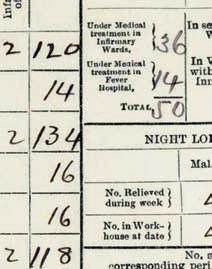 Infa
of
2 120
14
2 134
16
16
2 118
Under Medical
treatment in
Infirmary
Wards,
36
Under Medical
treatment in
Fever
Hospital,
14
TOTAL, 50
In se
In V
with
Inn
NIGHT LO
Mal
No. Relieved
during week
No. in Work-
house at date
No. s
corresponding peri